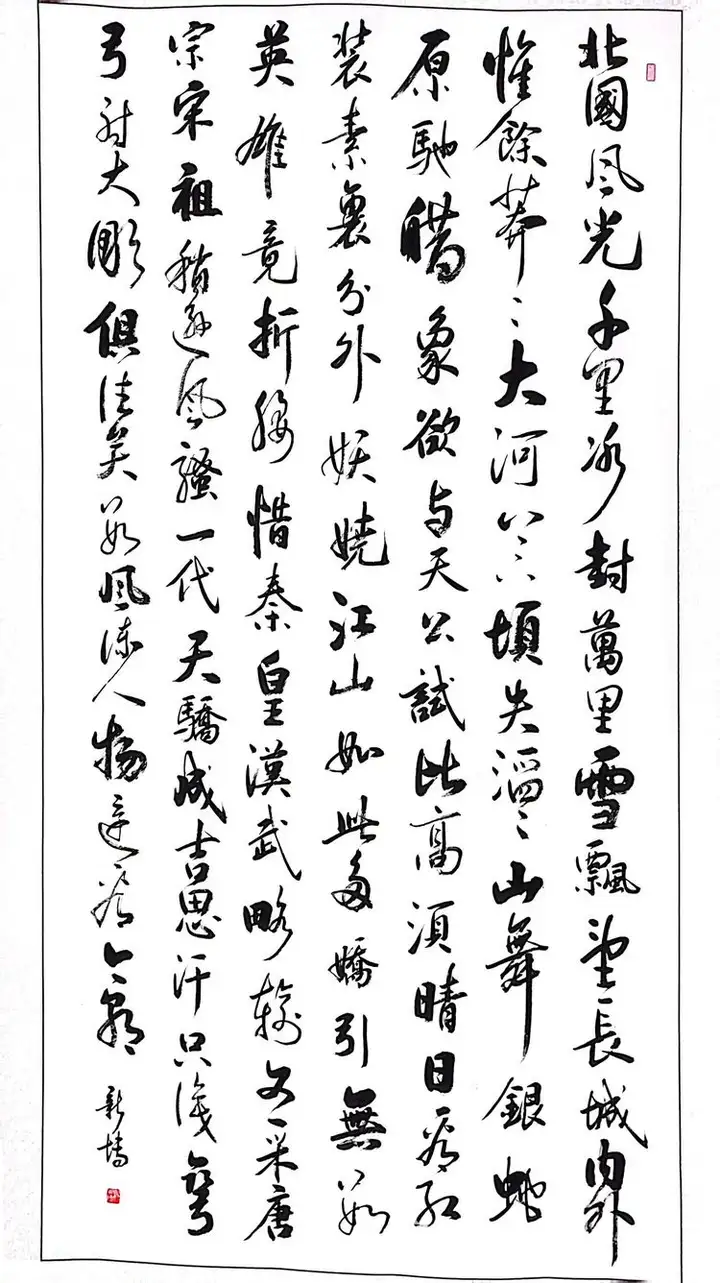 北國風光千里冰封萬里雪飄望長城內外
惟餘莽〻大河上下頓失滔〻山舞銀蛇
原馳臘象欲与天公試比高須晴日看紅
裝素裹分外妖嬈江山如此多嬌引無數
英雄竟折腰惜秦皇漢武略輸文采唐
宗宋祖稍遜風騷一代天驕成吉思汗只識彎
弓射大雕俱往矣數風流人物還看今朝
新